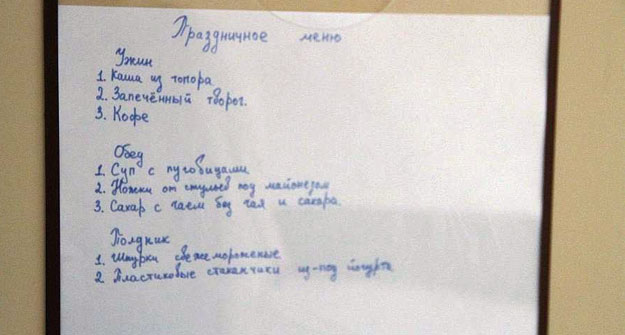 Праздничное меню
Ужин
1. Каша из топора
2. Запечённый творог.
3. Кофе
Обед
1. Суп с пуговицами
2. Ножки от стульев под майонезом
3. Сахар с чаем без чая и сахара.
Полдник
1. Шкурки свежемороженые
2 Пластиковые стаканчики из-под йогурта